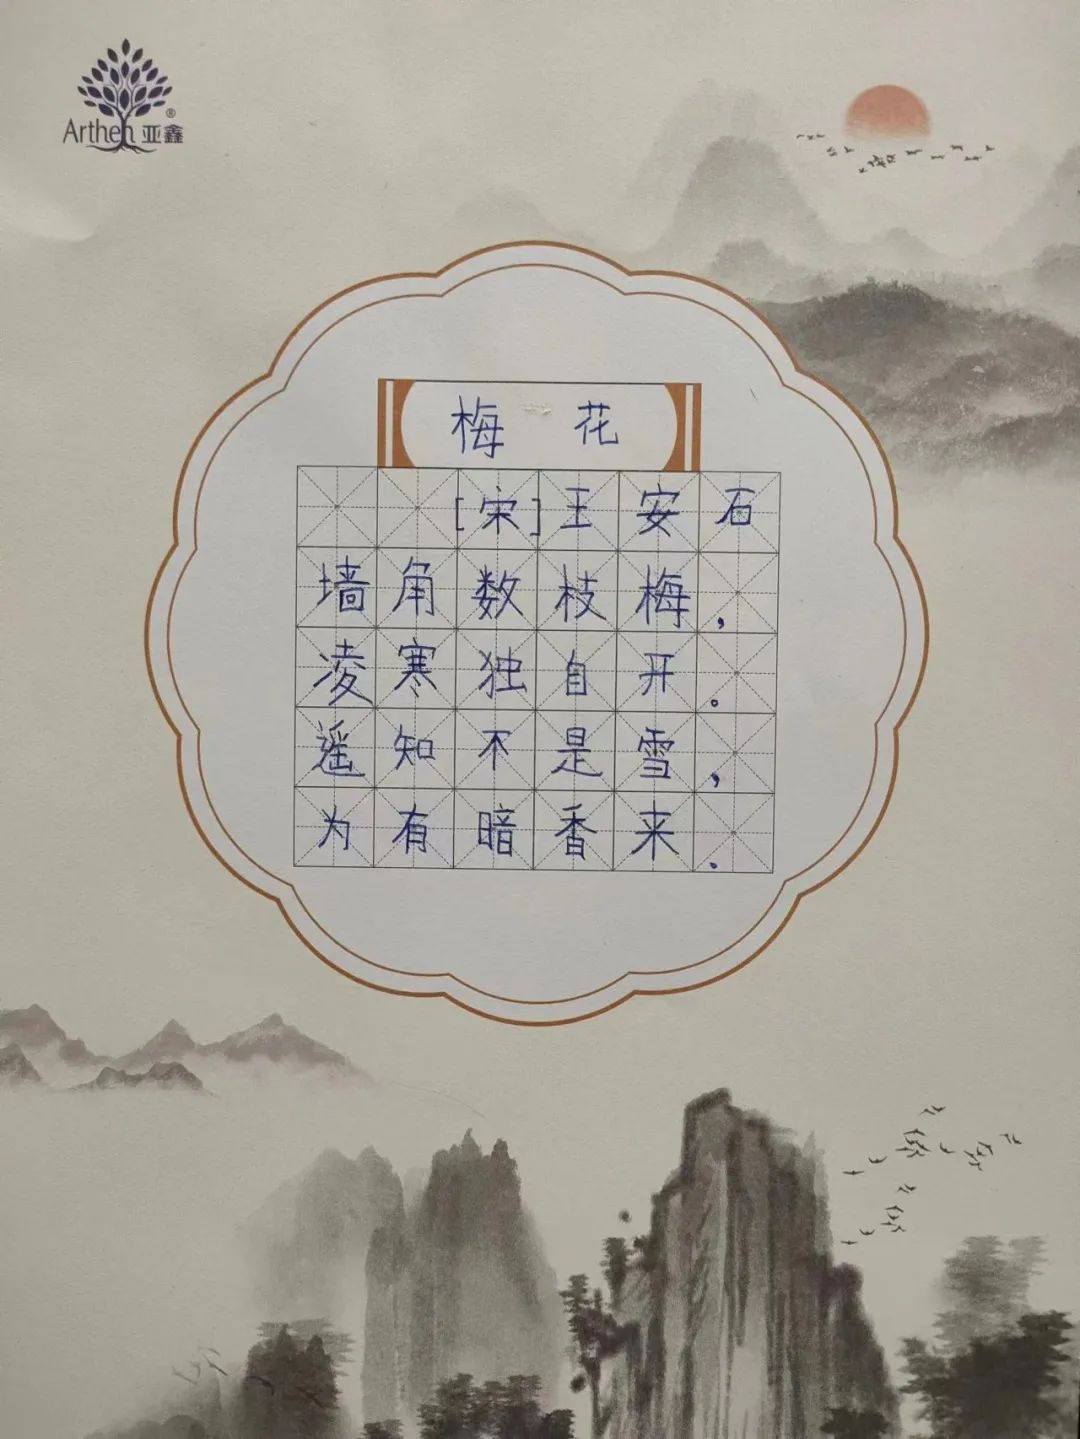 Arthen 亚鑫®
梅 花
[宋]王安石
墙角数枝梅，
凌寒独自开。
遥知不是雪，
为有暗香来.